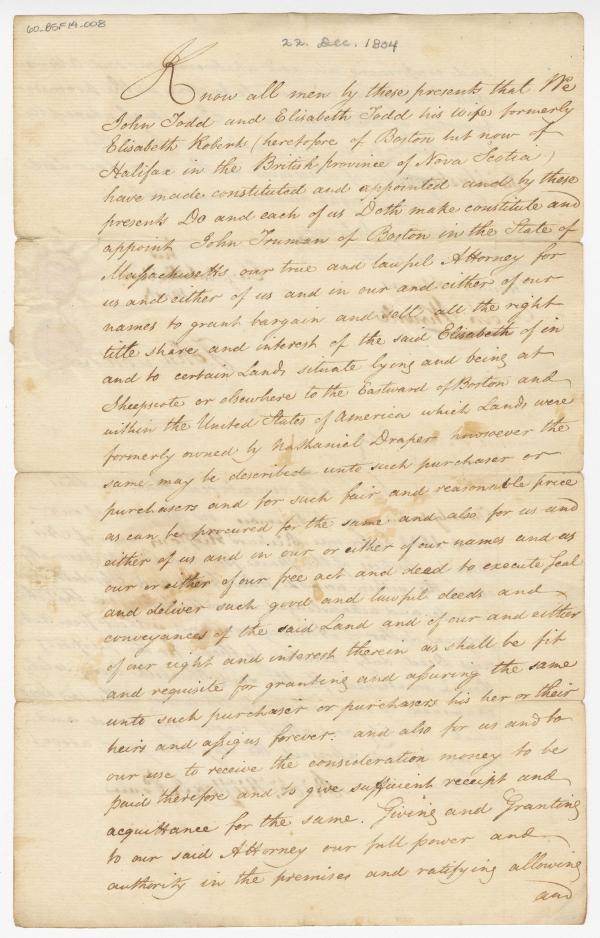 60_BSF14_008
22. Dec. 1804
Know all men by these presents that We
John Todd and Elisabeth Todd his wife formerly
Elisabeth Roberts (heretofore of Boston but now of
Halifax in the British province of Nova Scotia)
have made constituted and appointed and by these
presents Do and each of us Doth make constitute and
appoint John Truman of Boston in the State of
Massachusetts our true and lawful Attorney for
us and either of us and in our and either of our
names to grant bargain and sell all the right
title share and interest of the said Elisabeth of in
and to certain Lands situate lying and being at
Sheepscote or elsewhere to the Eastward of Boston and
within the United States of America which Lands were
formerly owned by Nathaniel Draper however the
same may be described unto such purchaser or
purchasers and for such fair and reasonable price
as can be procured for the same and also for us and
either of us and in our or either of our names and as
our or either of our free act and deed to execute seal
and deliver such good and lawful deeds and
conveyances of the said Land and of our and either
of our right and interest therein as shall be fit
and requisite for granting and assuring the same
unto such purchaser or purchasers his her or their
heirs and assigns forever. and also for us and to
our use to receive the consideration money to be
paid therefore and to give sufficient receipt and
acquittance for the same. Giving and Granting
to our said Attorney our full power and
authority in the premises and ratifying allowing
and